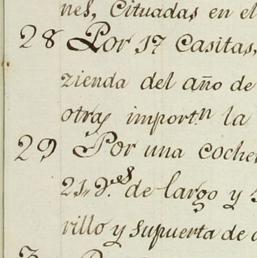 nes, cituadas en el
28 Por 17 casitas,
zienda del año de
otras import.n la
29 Por una coche
21,2.es de largo y
rillo y supuerta de